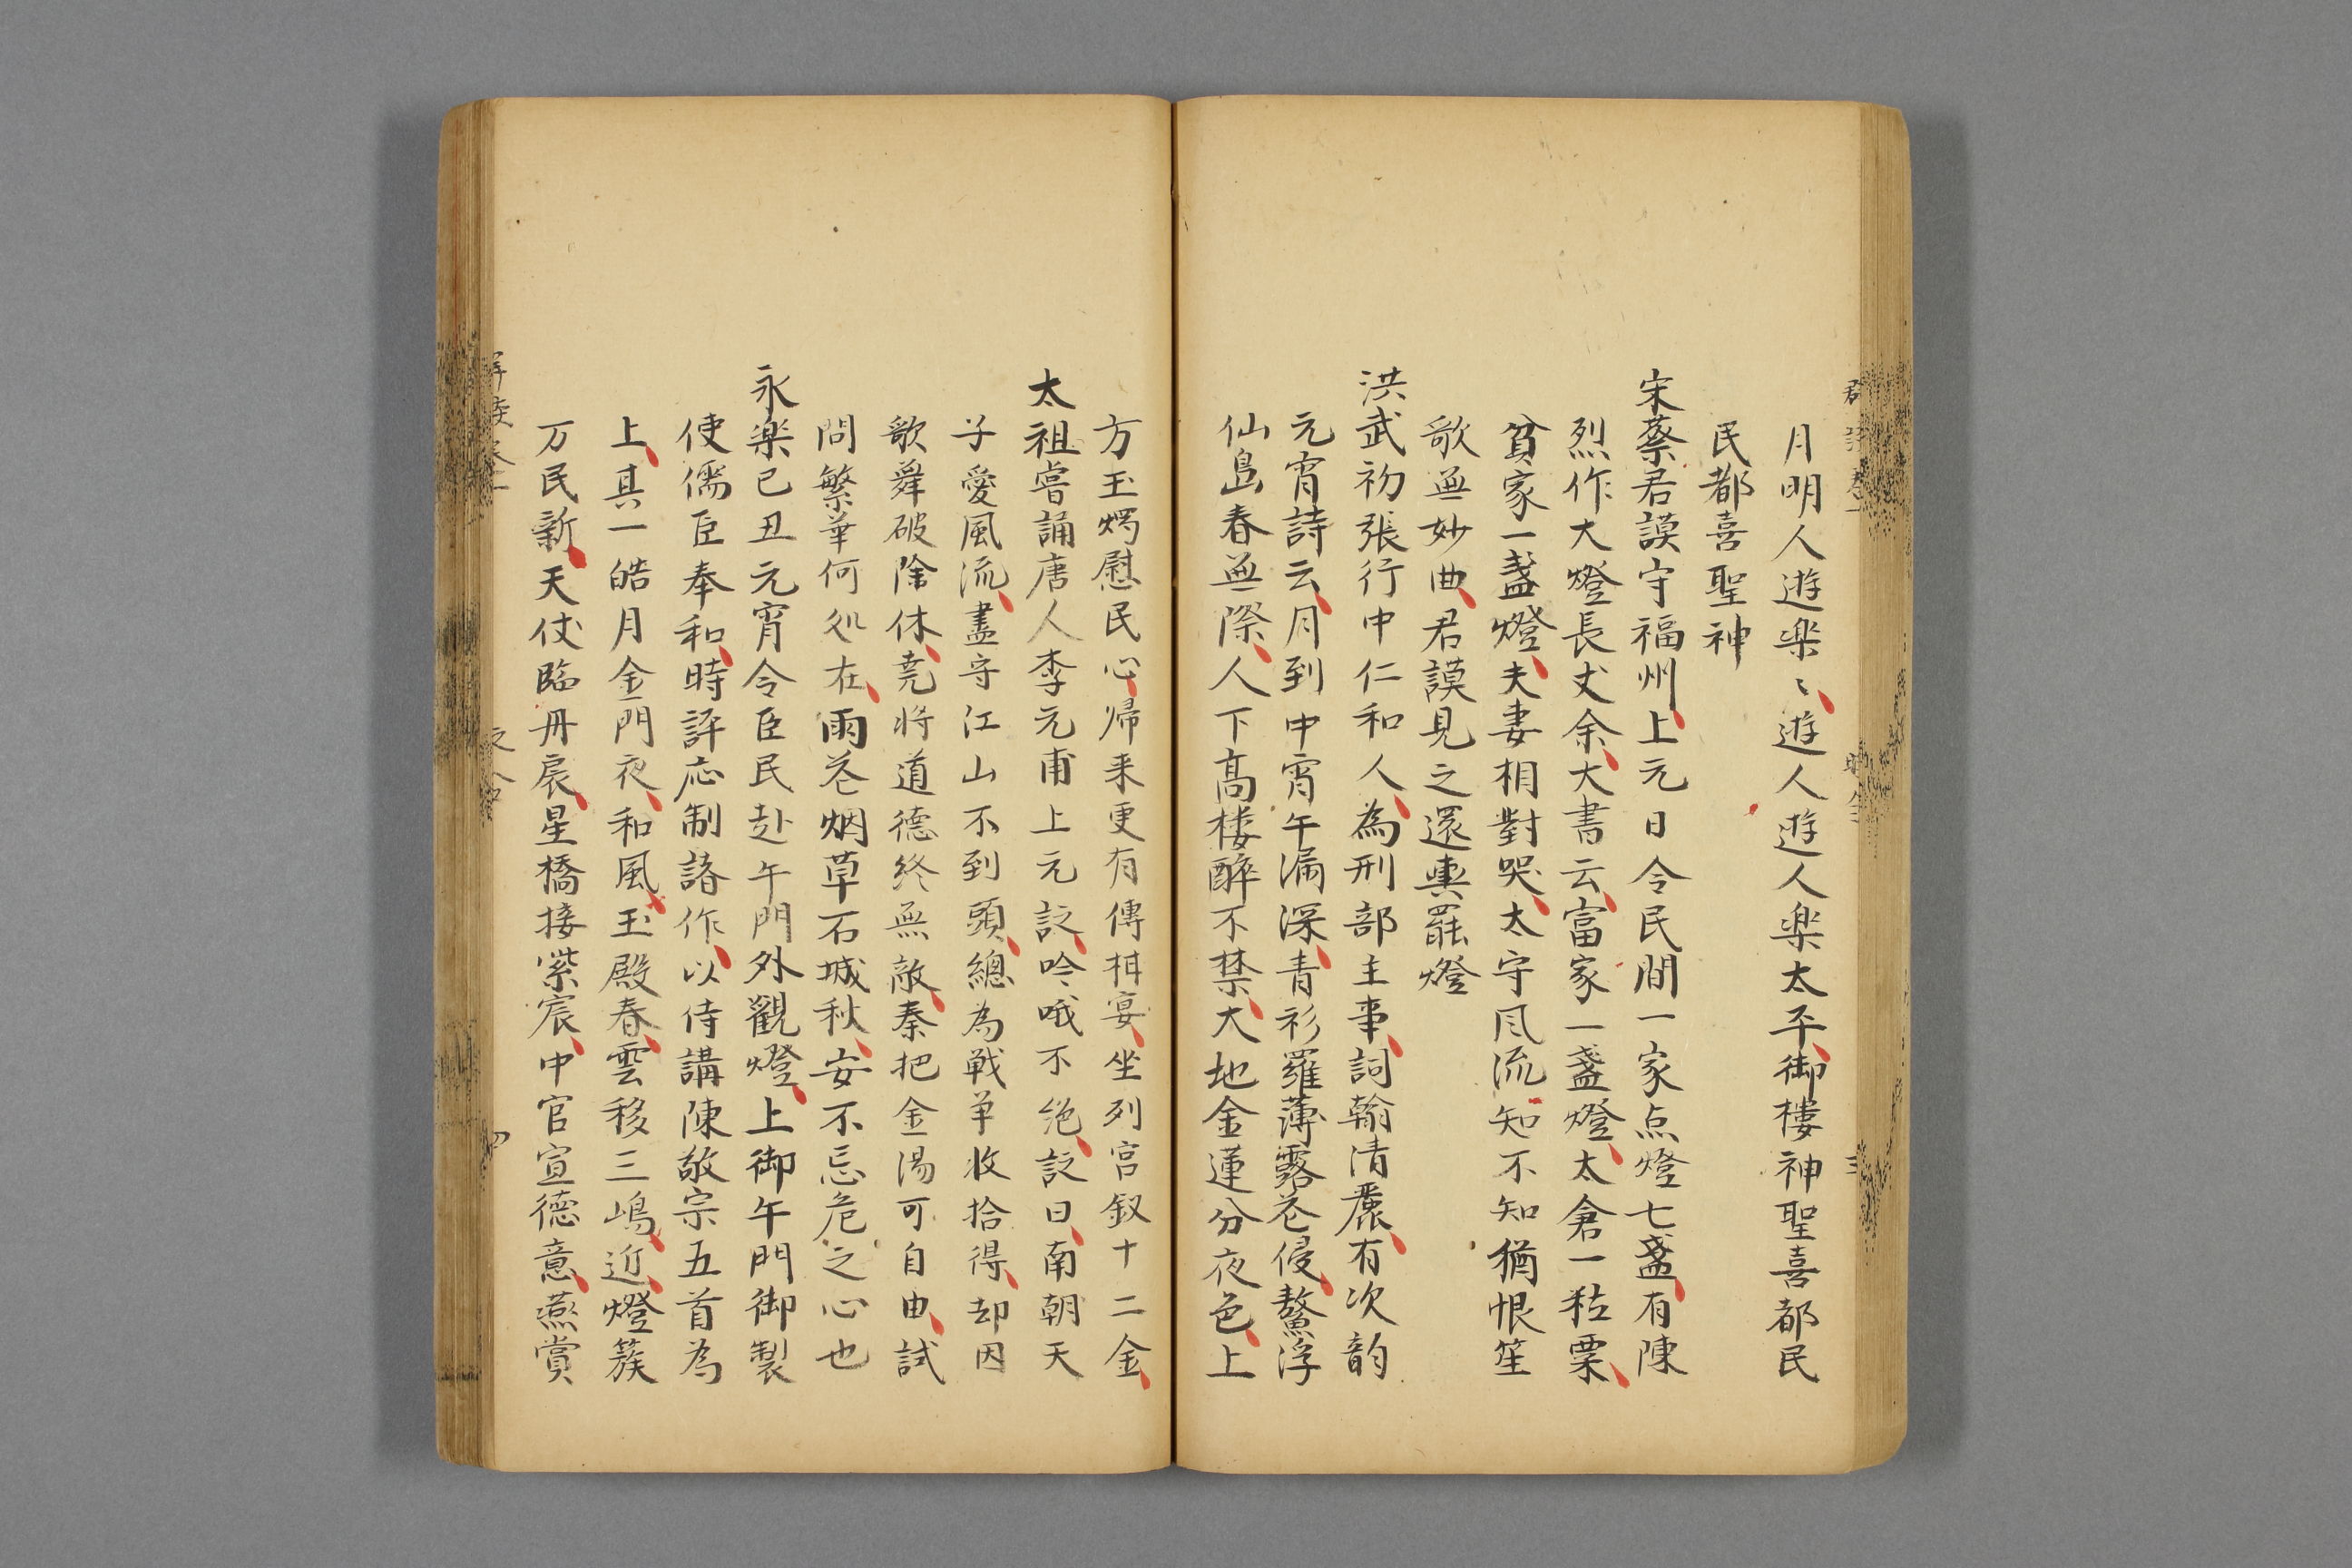 月明人遊楽〻遊人遊人楽太平御楼神聖喜都民
民都喜聖神
宋蔡君謨守福州上元日令民間一家点燈七盞有陳
烈作大燈長丈余大書云富家一盞燈太倉一粒粟
貧家一盞燈夫妻相對哭太守风流知不知猶恨笙
歌無妙曲君謨見之還輿罷燈
洪武初張行中仁和人為刑部主事詞翰清麗有次韵
元宵詩云月到中宵午漏深青衫羅薄露花侵鰲浮
仙島春無際人下高楼醉不禁大地金蓮分夜色上
方玉燭慰民心帰来更有傳柑宴坐列宮釵十二金
太祖嘗誦唐人李元甫上元詠吟哦不絶詠曰南朝天
子愛風流盡守江山不到頭總為戦争收拾得却因
歌舞破除休堯将道德終無敵秦把金湯可自由試
問繁華何処在雨花烟草石城秋安不忘危之心也
永楽己丑元宵令臣民赴午門外觀燈上御午門御製
使儒臣奉和時評応制諸作以侍講陳敬宗五首為
上其一皓月金門夜和風玉殿春雲移三嶋近燈簇
万民新天仗臨丹扆星橋接紫宸中官宣德意燕賞